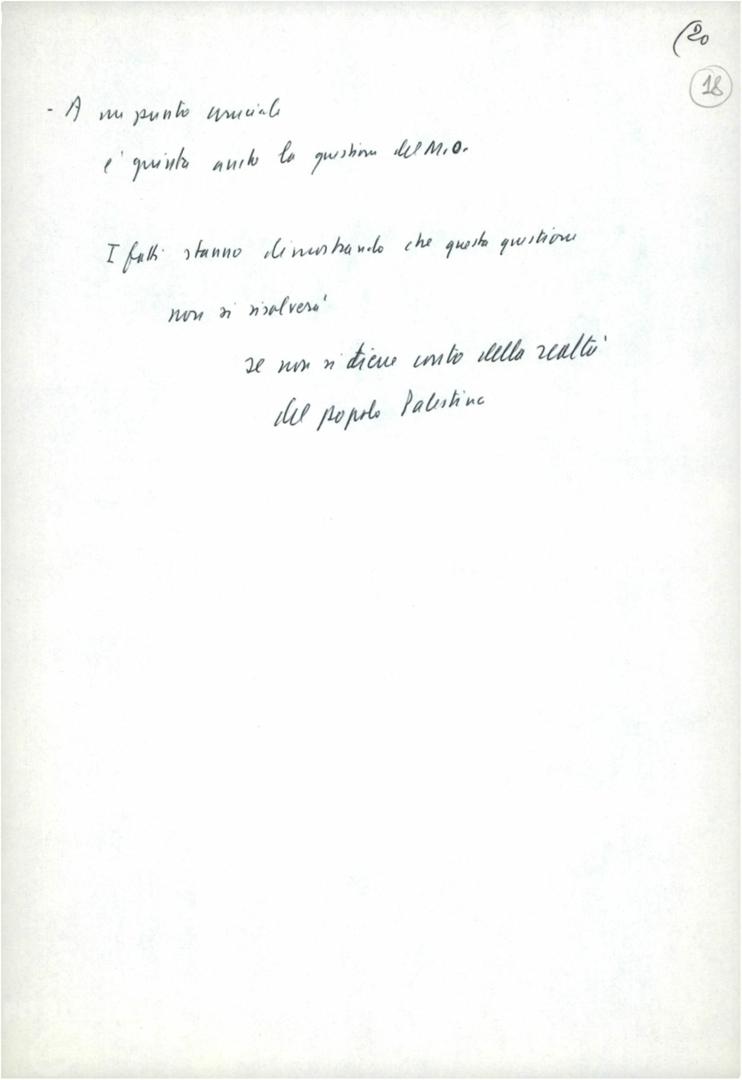 (20
18
- A un punto cruciale
e' giunta anche la questione del M.O.
I fatti stanno dimostrando che questa questione
non si risolverà
se non si tiene conto della realtà
del popolo Palestine